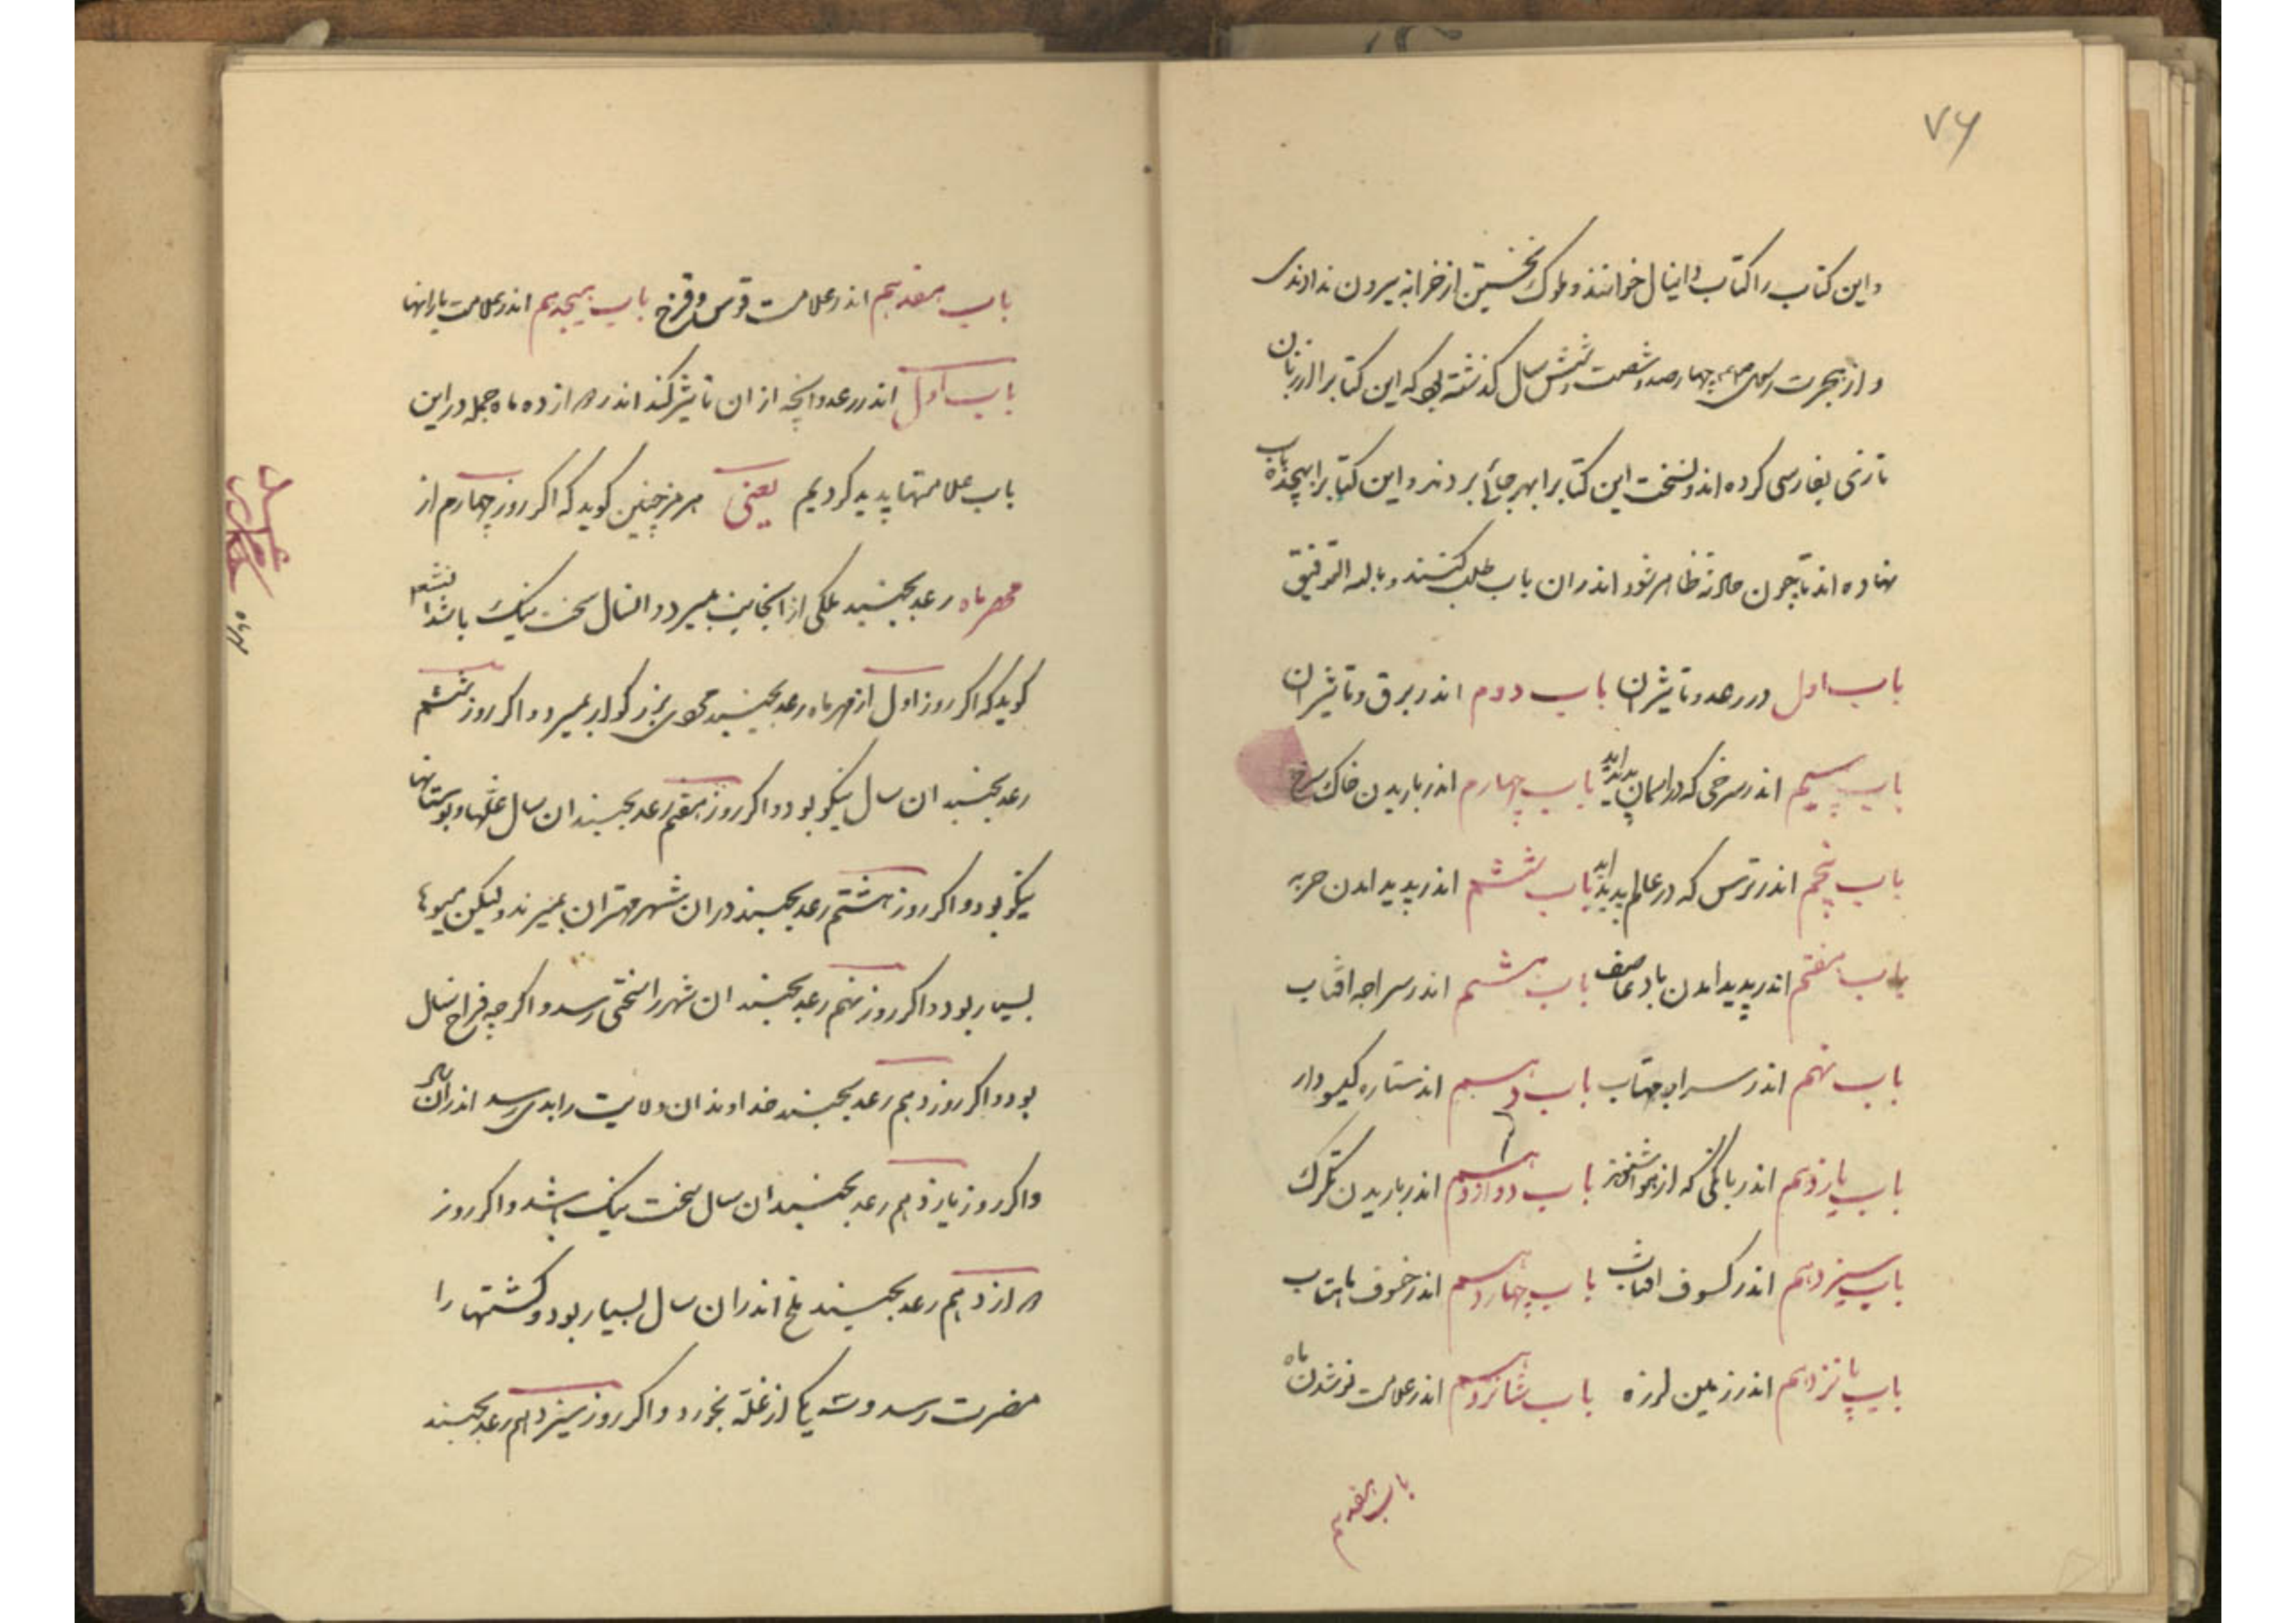 ۷۶
و این کتاب را کتاب دانیال خوانند و ملوک نخستین از خزانه بیرون ندادندی
و از هجرت رسول صلعم چهارصد و شصت و شش سال گذشته بود که این کتابرا از زبان
تازی بفارسی کرده اند و نسخت این کتابرا بهر جائی بردند و این کتابرا بهیجده باب
نهاده اند تا چون حادثه ظاهر شود اندران باب طلب کنند و بالله التوفیق
باب اول در رعد و تاثیر ان باب دوم اندر برق و تاثیر ان
باب سیم اندر سرخی که در اسمان پدید اید باب چهارم اندر باریدن خاک سرخ
باب پنجم اندر ترس که در عالم پدید اید باب ششم اندر پدید امدن حربه
باب هفتم اندر پدید امدن باد عاصف باب هشتم اندر سراچه افتاب
باب نهم اندر سرای مهتاب باب دهم اندر ستاره کیسودار
باب یازدهم اندر بانگی که از هوا شنوند باب دوازدهم اندر باریدن تگرگ
باب سیزدهم اندر کسوف افتاب باب چهاردهم اندر خسوف ماهتاب
باب پانزدهم اندر زمین لرزه باب شانزدهم اندر علامت نو شدن ماه
باب هفدهم
باب هفدهم اندر علامت قوس و قزح باب هیجدهم اندر علامت بارانها
باب اول اندر رعد و انچه از ان تاثیر کند اندر دوازده ماه جمله در این
باب علامتها پدید کردیم یعنی هرمز چنین کوید که اکر روز چهارم از
مهرماه رعد بجنبد ملکی از انجانب بمیرد و انسال سخت نیک باشد
کوید که اکر روز اول از مهر ماه رعد بجنبد مردی بزرکوار بمیرد و اکر روز ششم
رعد بجنبد ان سال نیکو بود و اکر روز هفتم رعد بجنبد ان سال غلها و بوستانها
نیکو بود و اکر روز هشتم رعد بجنبد در ان شهر مهتران بمیرند ولیکن میوها
بسیار بود و اکر روز نهم رعد بجنبد ان شهر را سختی رسد و اکر چه فراخ سال
بود و اکر روز دهم رعد بجنبد خداوندان ولایت را بدی رسد اندر ان سال
و اکر روز یازدهم رعد بجنبد ان سال سخت نیک باشد و اکر روز
دوازدهم رعد بجنبد ملخ اندر ان سال بسیار بود و کشتها را
مضرت رسد و سه یکی از غله بخورد و اکر روز سیزدهم رعد بجنبد
مهرماه